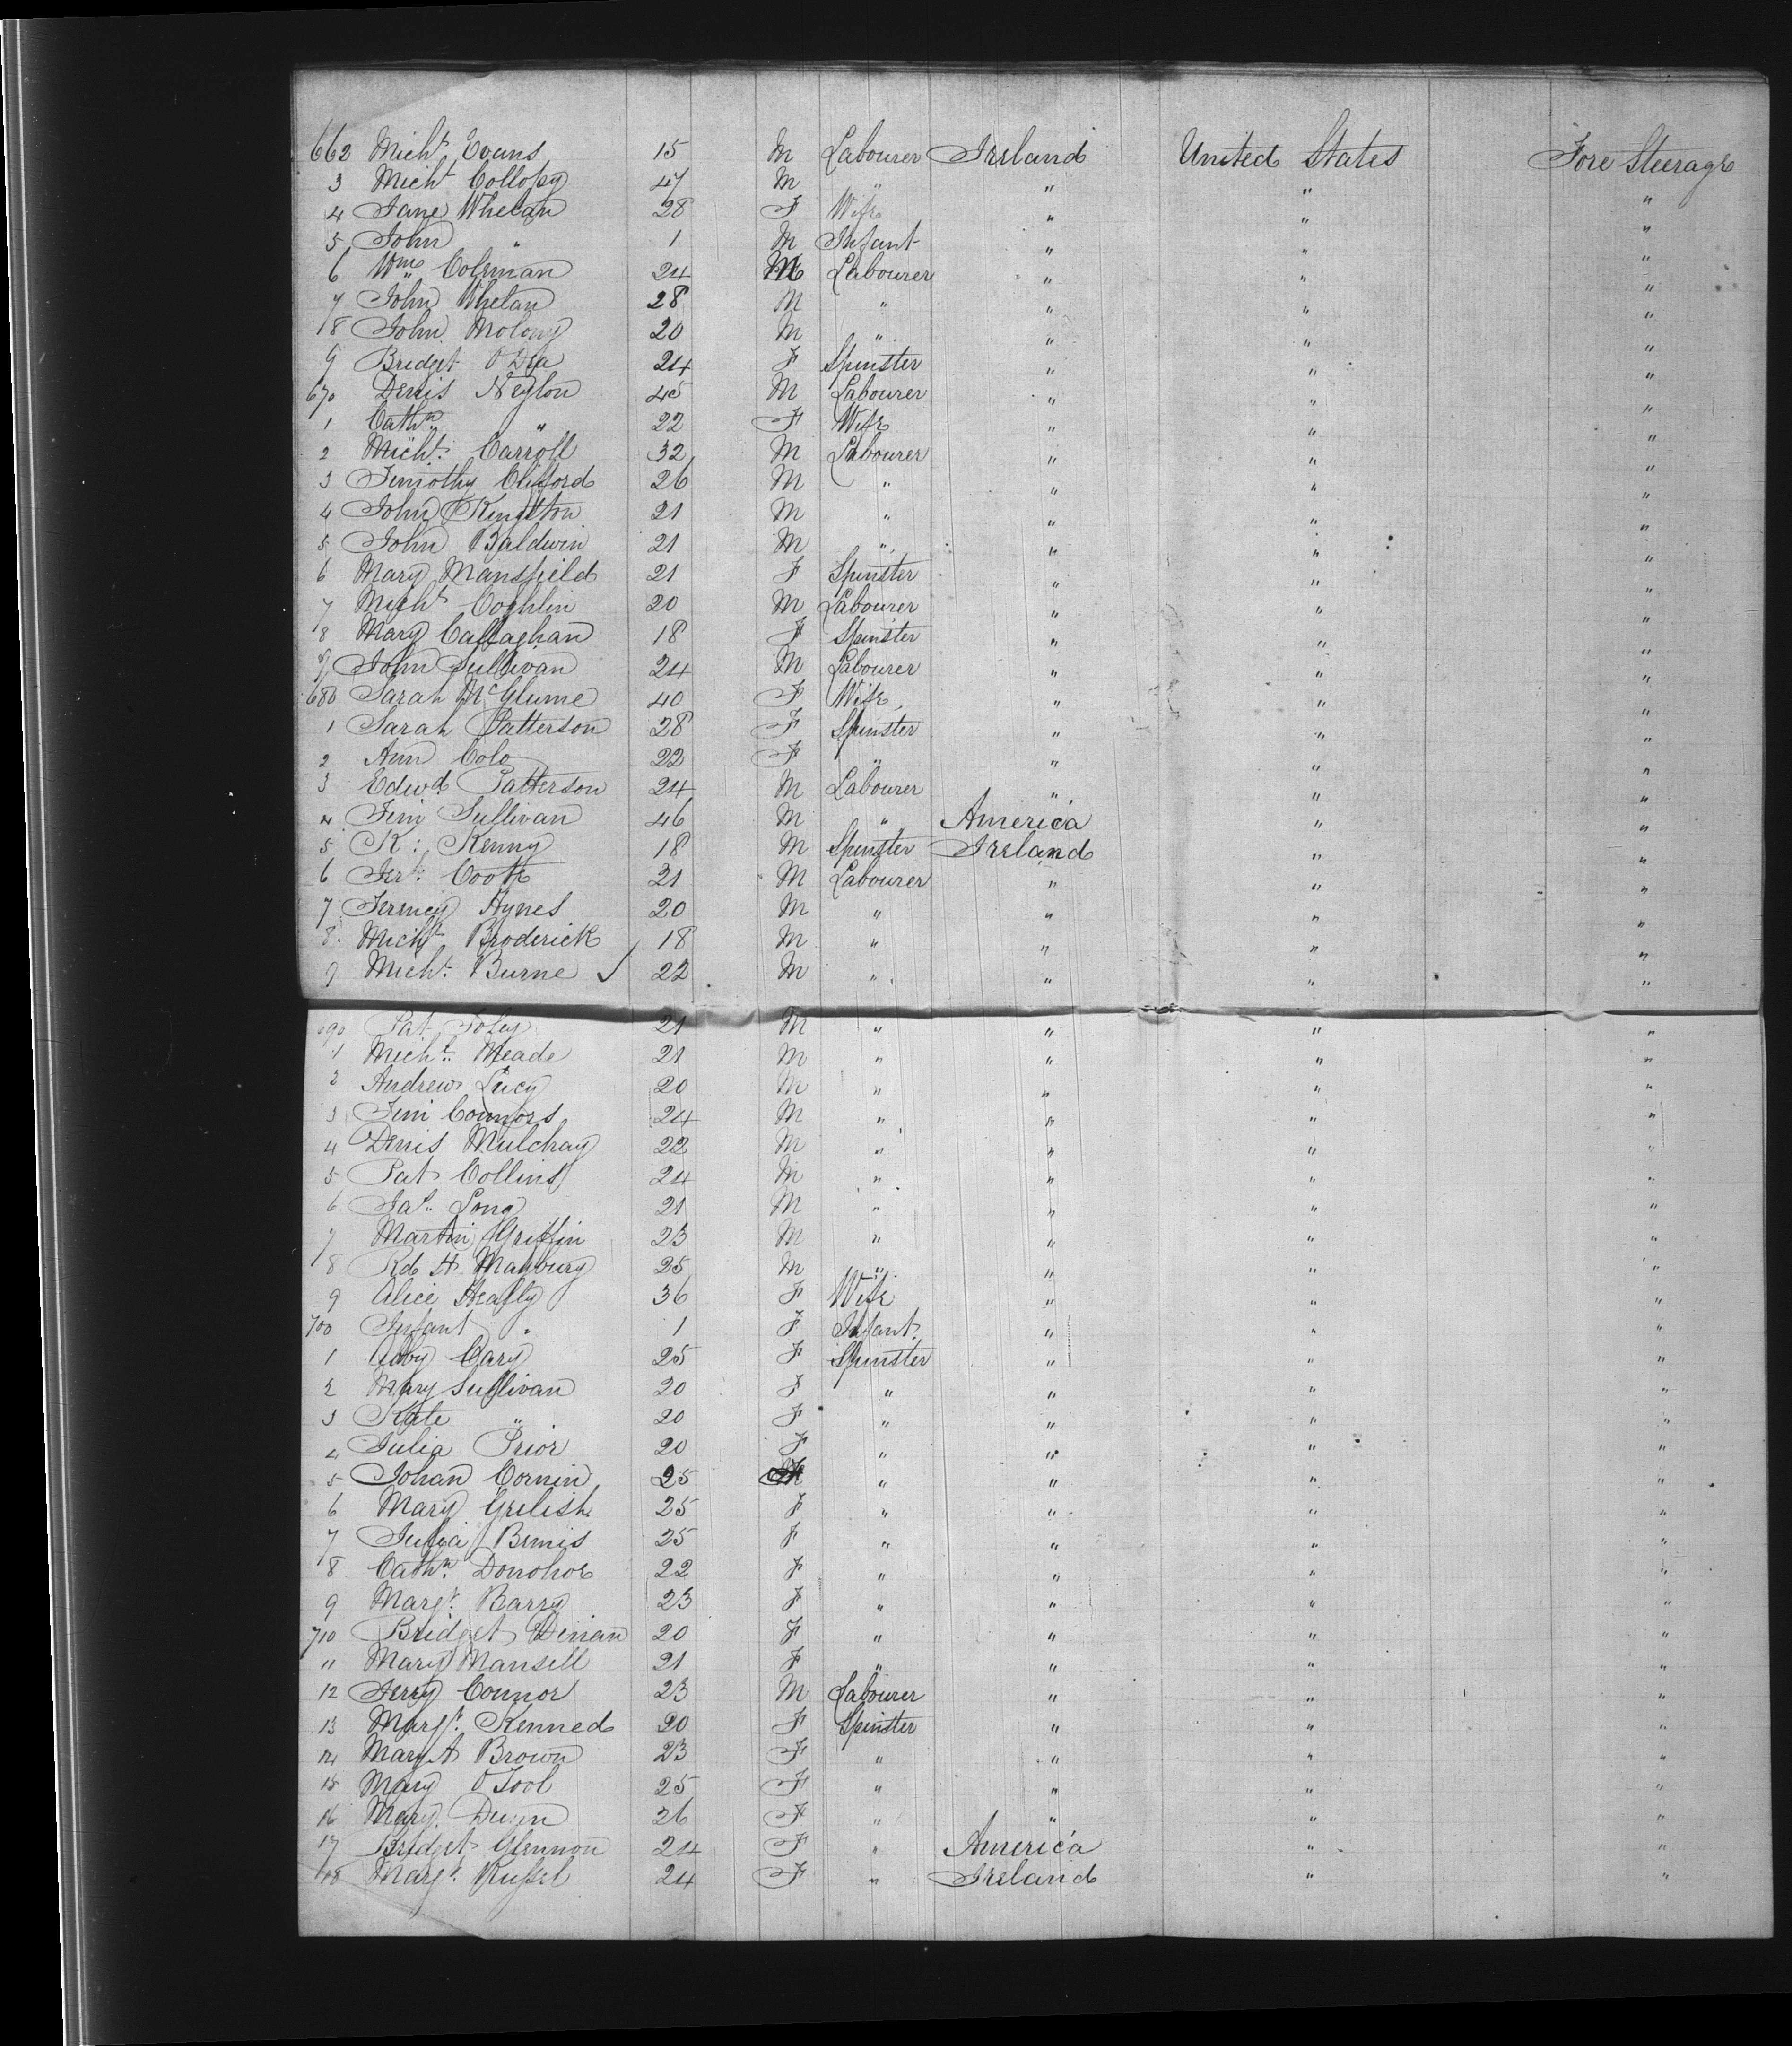 662 Michl Evans 15 M Labourer Ireland United States Fore Steerage
3 Michl Collopy 47 M " " " "
4 Jane Whelan 28 F Wife " " "
5 John " 1 M Infant " " "
6 Wm Coleman 24 M Labourer " " "
7 John Whelan 28 M " " " "
8 John Molony 20 M " " " "
9 Bridget O Dea 24 F Spinster " " "
670 Denis Neylon 45 M Labourer " " "
1 Cathn " 22 F Wife " " "
2 Michl Carroll 32 M Labourer " " "
3 Timothy Clifford 26 M " " " "
4 John Kingston 21 M " " " "
5 John Baldwin 21 M " " " "
6 Mary Mansfield 21 F Spinster " " "
7 Michl Coghlin 20 M Labourer " " "
8 Mary Callaghan 18 F Spinster " " "
9 John Sullivan 24 M Labourer " " "
680 Sarah McGlume 40 F Wife " " "
1 Sarah Patterson 28 F Spinster " " "
2 Ann Colo 22 F " " " "
3 Edwd Patterson 24 M Labourer " " "
4 Tim Sullivan 46 M " America " "
5 K: Kenny 18 M Spinster Ireland " "
6 Jerh Coote 21 M Labourer " " "
7 Jermey Hynes 20 M " " " "
8 Michl Broderick 18 M " " " "
9 Michl Burne ✓ 22 M " " " "
690 Pat Foley 21 M " " " "
1 Michl Meade 21 M " " " "
2 Andrew Lucy 20 M " " " "
3 Tim Connors 24 M " " " "
4 Denis Mulchay 22 M " " " "
5 Pat Collins 24 M " " " "
6 Jas Long 21 M " " " "
7 Martin Griffin 23 M " " " "
8 Rd H Maybury 25 M " " " "
9 Alice Heafly 36 F Wife " " "
700 Infant " 1 F Infant " " "
1 Abby Cary 25 F Spinster " " "
2 Mary Sullivan 20 F " " " "
3 Kate " 20 F " " " "
4 Julia Prior 20 F " " " "
5 Johan Cornin 25 " " " "
6 Mary Grelish 25 F " " " "
7 Julia Bemis 25 F " " " "
8 Cathn Donohoe 22 F " " " "
9 Margt Barry 23 F " " " "
710 Bridget Dinan 20 F " " " "
11 Mary Mansell 21 F " " " "
12 Jerry Connor 23 M Labourer " " "
13 Margt Kenned 20 F Spinster " " "
14 Mary A Brown 23 F " " " "
15 Mary O Tool 25 F " " " "
16 Mary 26 F " " " "
17 Bridget Glennon 24 F " America " "
718 Margt Russel 24 F " Ireland " "